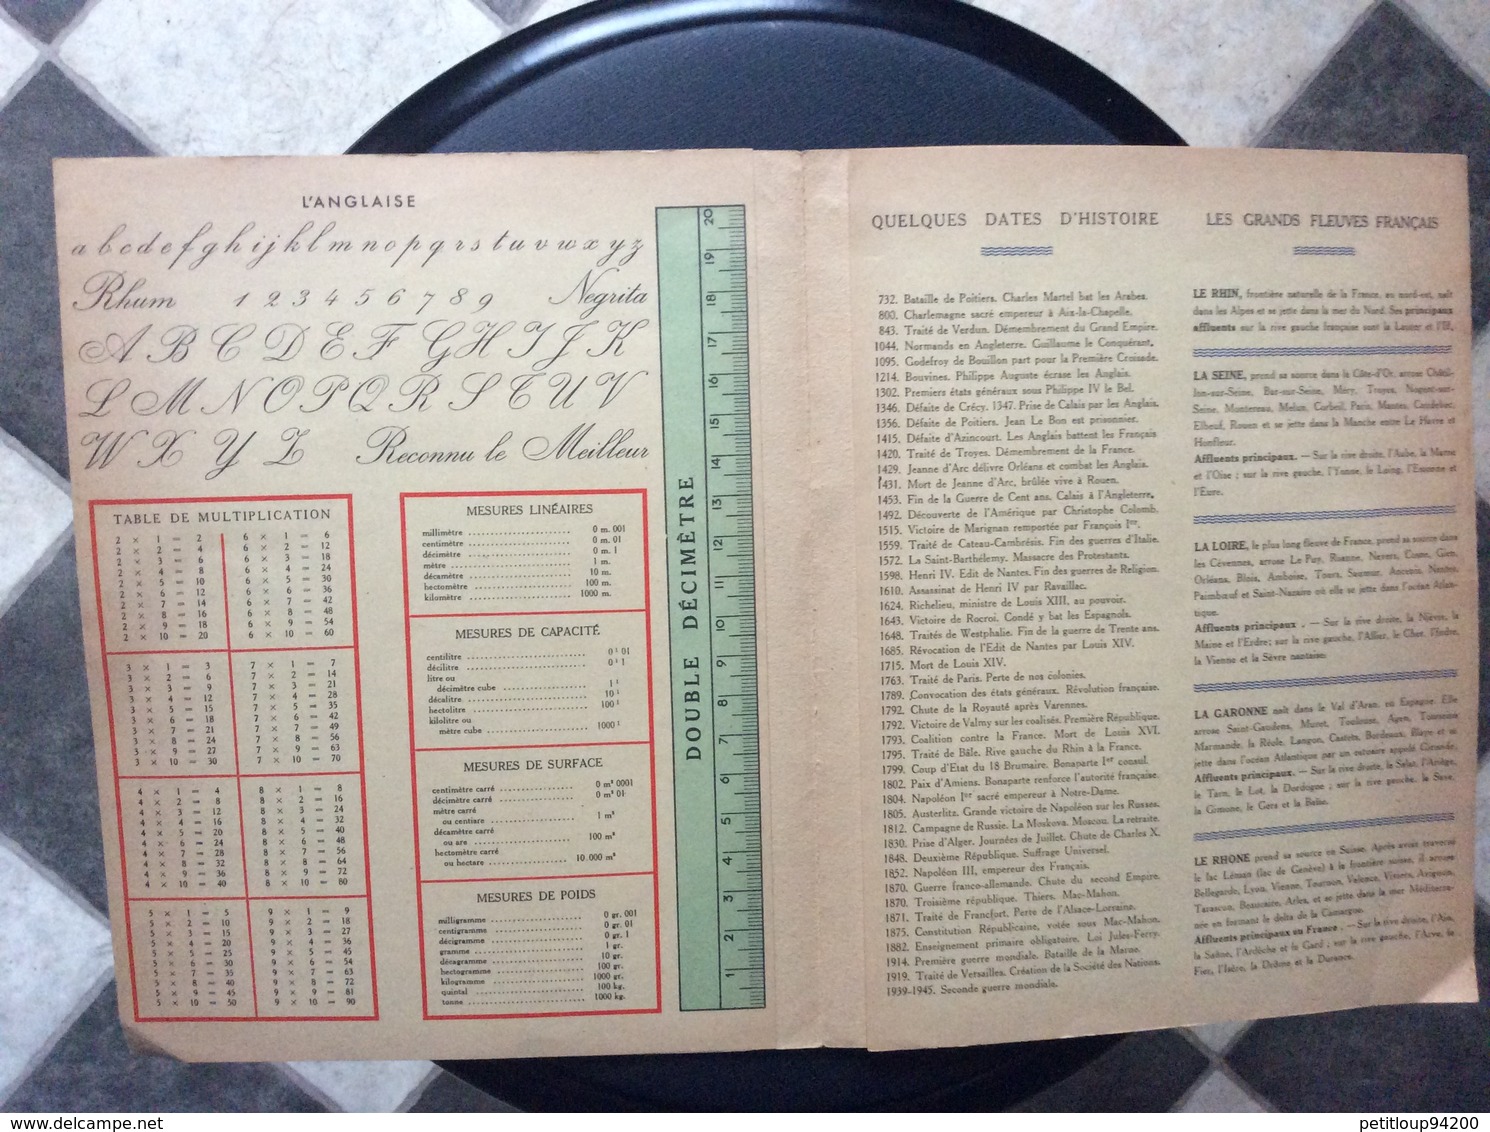 L'ANGLAISE
a b c d e f g h i j k l m n o p q r s t u v w x y z
Rhum 1 2 3 4 5 6 7 8 9 Negrita
A B C D E F G H I J K
L M N O P Q R S T U V
W X Y Z Reconnu le Meilleur
TABLE DE MULTIPLICATION
2 × 1 = 2
2 × 2 = 4
2 × 3 = 6
2 × 4 = 8
2 × 5 = 10
2 × 6 = 12
2 × 7 = 14
2 × 8 = 16
2 × 9 = 18
2 × 10 = 20
6 × 1 = 6
6 × 2 = 12
6 × 3 = 18
6 × 4 = 24
6 × 5 = 30
6 × 6 = 36
6 × 7 = 42
6 × 8 = 48
6 × 9 = 54
6 × 10 = 60
3 × 1 = 3
3 × 2 = 6
3 × 3 = 9
3 × 4 = 12
3 × 5 = 15
3 × 6 = 18
3 × 7 = 21
3 × 8 = 24
3 × 9 = 27
3 × 10 = 30
7 × 1 = 7
7 × 2 = 14
7 × 3 = 21
7 × 4 = 28
7 × 5 = 35
7 × 6 = 42
7 × 7 = 49
7 × 8 = 56
7 × 9 = 63
7 × 10 = 70
4 × 1 = 4
4 × 2 = 8
4 × 3 = 12
4 × 4 = 16
4 × 5 = 20
4 × 6 = 24
4 × 7 = 28
4 × 8 = 32
4 × 9 = 36
4 × 10 = 40
8 × 1 = 8
8 × 2 = 16
8 × 3 = 24
8 × 4 = 32
8 × 5 = 40
8 × 6 = 48
8 × 7 = 56
8 × 8 = 64
8 × 9 = 72
8 × 10 = 80
5 × 1 = 5
5 × 2 = 10
5 × 3 = 15
5 × 4 = 20
5 × 5 = 25
5 × 6 = 30
5 × 7 = 35
5 × 8 = 40
5 × 9 = 45
5 × 10 = 50
9 × 1 = 9
9 × 2 = 18
9 × 3 = 27
9 × 4 = 36
9 × 5 = 45
9 × 6 = 54
9 × 7 = 63
9 × 8 = 72
9 × 9 = 81
9 × 10 = 90
MESURES LINÉAIRES
millimètre 0 m. 001
centimètre 0 m. 01
décimètre 0 m. 1
mètre 1 m.
décamètre 10 m.
hectomètre 100 m.
kilomètre 1000 m.
MESURES DE CAPACITÉ
centilitre 0 l 01
décilitre 0 l 1
litre ou
décimètre cube 1 l
décalitre 10 l
hectolitre 100 l
kilolitre ou
mètre cube 1000 l
MESURES DE SURFACE
centimètre carré 0 m² 0001
décimètre carré 0 m² 01
mètre carré
ou centiare 1 m²
décamètre carré
ou are 100 m²
hectomètre carré
ou hectare 10.000 m²
MESURES DE POIDS
milligramme 0 gr. 001
centigramme 0 gr. 01
décigramme 0 gr. 1
gramme 1 gr.
décagramme 10 gr.
hectogramme 100 gr.
kilogramme 1000 gr.
quintal 100 kg.
tonne 1000 kg.
DOUBLE DÉCIMÈTRE
1 2 3 4 5 6 7 8 9 10 11 12 13 14 15 16 17 18 19 20
QUELQUES DATES D'HISTOIRE
732. Bataille de Poitiers. Charles Martel bat les Arabes.
800. Charlemagne sacré empereur à Aix-la-Chapelle.
843. Traité de Verdun. Démembrement du Grand Empire.
1044. Normands en Angleterre. Guillaume le Conquérant.
1095. Godefroy de Bouillon part pour la Première Croisade.
1214. Bouvines. Philippe Auguste écrase les Anglais.
1302. Premiers états généraux sous Philippe IV le Bel.
1346. Défaite de Crécy. 1347. Prise de Calais par les Anglais.
1356. Défaite de Poitiers. Jean Le Bon est prisonnier.
1415. Défaite d'Azincourt. Les Anglais battent les Français
1420. Traité de Troyes. Démembrement de la France.
1429. Jeanne d'Arc délivre Orléans et combat les Anglais.
1431. Mort de Jeanne d'Arc, brûlée vive à Rouen.
1453. Fin de la Guerre de Cent ans. Calais à l'Angleterre.
1492. Découverte de l'Amérique par Christophe Colomb.
1515. Victoire de Marignan remportée par François Ier.
1559. Traité de Cateau-Cambrésis. Fin des guerres d'Italie.
1572. La Saint-Barthélemy. Massacre des Protestants.
1598. Henri IV. Edit de Nantes. Fin des guerres de Religion.
1610. Assassinat de Henri IV par Ravaillac.
1624. Richelieu, ministre de Louis XIII, au pouvoir.
1643. Victoire de Rocroi. Condé y bat les Espagnols.
1648. Traités de Westphalie. Fin de la guerre de Trente ans.
1685. Révocation de l'Edit de Nantes par Louis XIV.
1715. Mort de Louis XIV.
1763. Traité de Paris. Perte de nos colonies.
1789. Convocation des états généraux. Révolution française.
1792. Chute de la Royauté après Varennes.
1792. Victoire de Valmy sur les coalisés. Première République.
1793. Coalition contre la France. Mort de Louis XVI.
1795. Traité de Bâle. Rive gauche du Rhin à la France.
1799. Coup d'Etat du 18 Brumaire. Bonaparte 1er consul.
1802. Paix d'Amiens. Bonaparte renforce l'autorité française.
1804. Napoléon Ier sacré empereur à Notre-Dame.
1805. Austerlitz. Grande victoire de Napoléon sur les Russes.
1812. Campagne de Russie. La Moskova. Moscou. La retraite.
1830. Prise d'Alger. Journées de Juillet. Chute de Charles X.
1848. Deuxième République. Suffrage Universel.
1852. Napoléon III, empereur des Français.
1870. Guerre franco-allemande. Chute du second Empire.
1870. Troisième république. Thiers. Mac-Mahon.
1871. Traité de Francfort. Perte de l'Alsace-Lorraine.
1875. Constitution Républicaine, votée sous Mac-Mahon.
1882. Enseignement primaire obligatoire. Loi Jules-Ferry.
1914. Première guerre mondiale. Bataille de la Marne.
1919. Traité de Versailles. Création de la Société des Nations.
1939-1945. Seconde guerre mondiale.
LES GRANDS FLEUVES FRANÇAIS
LE RHIN, frontière naturelle de la France, au nord-est, naît
dans les Alpes et se jette dans la mer du Nord. Ses principaux
affluents sur la rive gauche française sont la Lauter et l'Ill.
LA SEINE, prend sa source dans la Côte-d'Or, arrose Châtil-
lon-sur-Seine, Bar-sur-Seine, Méry, Troyes, Nogent-sur-
Seine, Montereau, Melun, Corbeil, Paris, Mantes, Caudebec,
Elbeuf, Rouen et se jette dans la Manche entre Le Havre et
Honfleur.
Affluents principaux. — Sur la rive droite, l'Aube, la Marne
et l'Oise ; sur la rive gauche, l'Yonne, le Loing, l'Essonne et
l'Eure.
LA LOIRE, le plus long fleuve de France, prend sa source dans
les Cévennes, arrose Le Puy, Roanne, Nevers, Cosne, Gien,
Orléans, Blois, Amboise, Tours, Saumur, Ancenis, Nantes,
Paimbœuf et Saint-Nazaire où elle se jette dans l'océan Atlan-
tique.
Affluents principaux. — Sur la rive droite, la Nièvre, la
Maine et l'Erdre; sur la rive gauche, l'Allier, le Cher, l'Indre,
la Vienne et la Sèvre nantaise.
LA GARONNE naît dans le Val d'Aran, en Espagne. Elle
arrose Saint-Gaudens, Muret, Toulouse, Agen, Tonneins
Marmande, la Réole, Langon, Castets, Bordeaux, Blaye et se
jette dans l'océan Atlantique par un estuaire appelé Gironde.
Affluents principaux. — Sur la rive droite, le Salat, l'Ariège,
le Tarn, le Lot, la Dordogne ; sur la rive gauche, la Save,
la Gimone, le Gers et la Baïse.
LE RHONE prend sa source en Suisse. Après avoir traversé
le lac Léman (lac de Genève) à la frontière suisse, il arrose
Bellegarde, Lyon, Vienne, Tournon, Valence, Viviers, Avignon,
Tarascon, Beaucaire, Arles, et se jette dans la mer Méditerra-
née en formant le delta de la Camargue.
Affluents principaux en France. — Sur la rive droite, l'Ain,
la Saône, l'Ardèche et le Gard ; sur la rive gauche, l'Arve, le
Fier, l'Isère, la Drôme et la Durance.
www.delcampe.net
petitloup94200